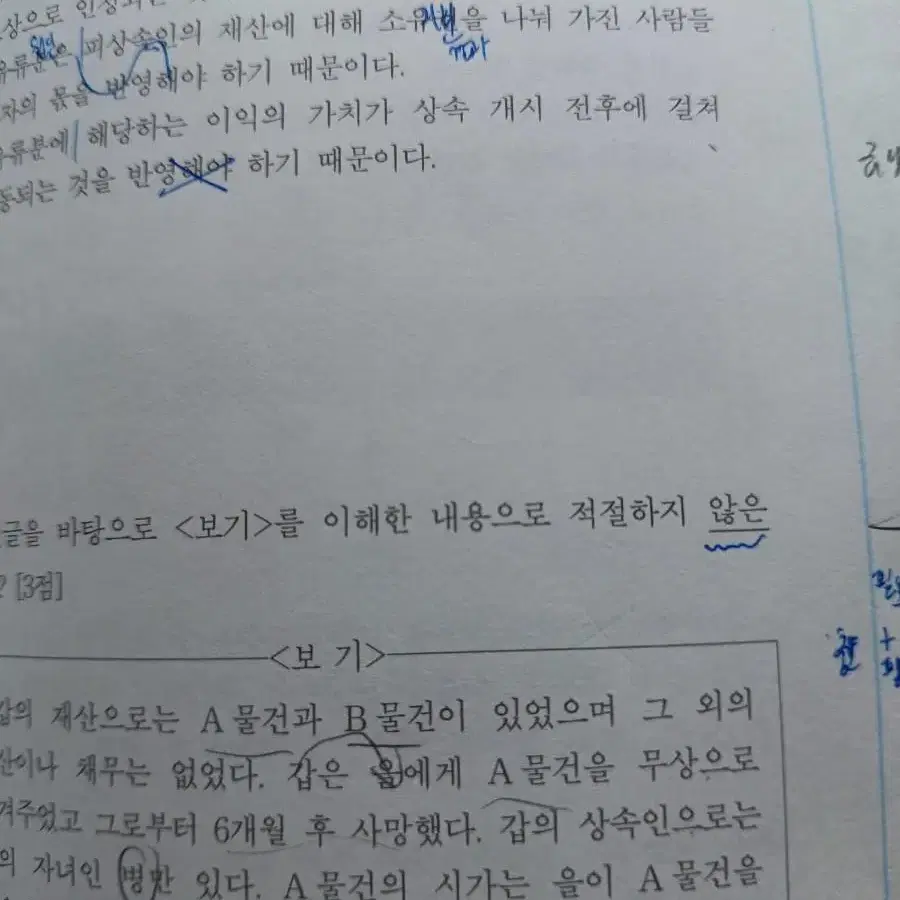 상으로 인정되는
유류분은 피상속인의 재산에 대해 소유권을 나눠 가진 사람들
자의 몫을 반영해야 하기 때문이다.
유류분에 해당하는 이익의 가치가 상속 개시 전후에 걸쳐
동되는 것을 반영해야 하기 때문이다.
글을 바탕으로 <보기>를 이해한 내용으로 적절하지 않은
? [3점]
<보 기>
갑의 재산으로는 A 물건과 B 물건이 있었으며 그 외의
산이나 채무는 없었다. 갑은 을에게 A 물건을 무상으로
겨주었고 그로부터 6개월 후 사망했다. 갑의 상속인으로는
의 자녀인 병만 있다. A 물건의 시가는 을이 A 물건을